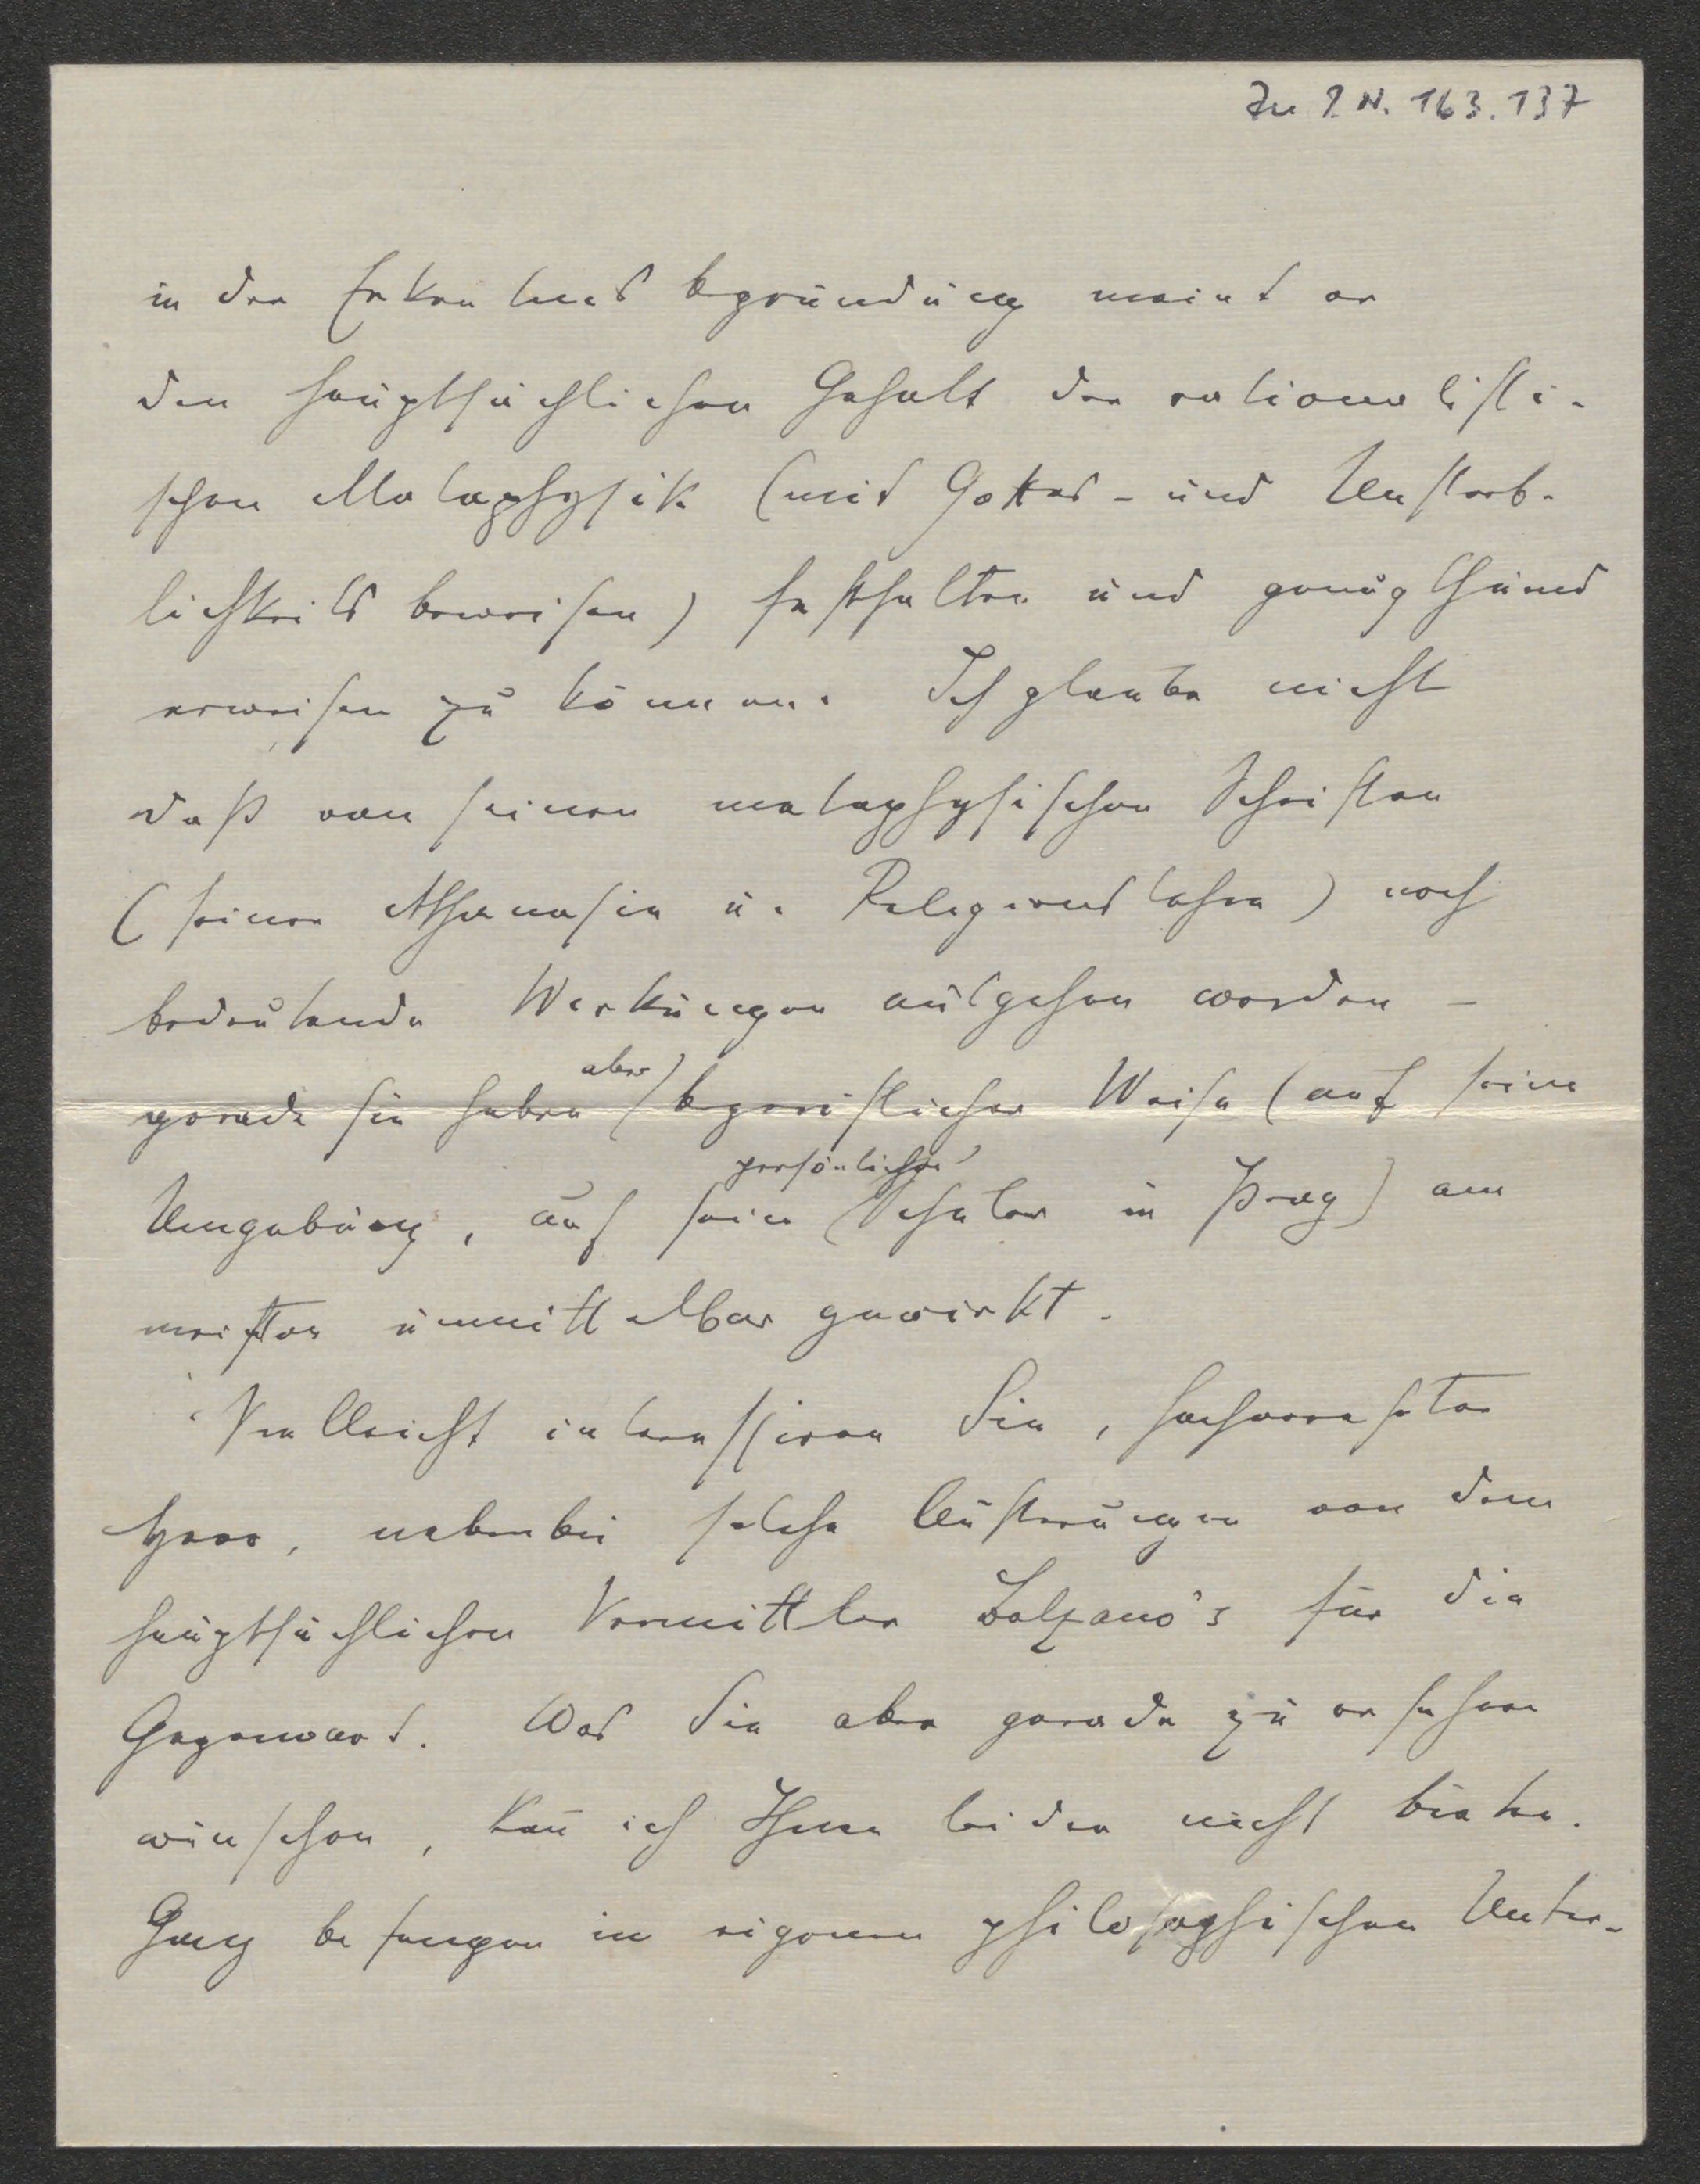 Zu I.N. 163.137
in der Erkenntnisbegründung meint er
den hauptsächlichen Gehalt der rationalisti-
schen Metaphysik (mit Gottes- und Unsterb-
lichkeitsbeweisen) festhalten und genugthuend
erweisen zu können. Ich glaube nicht
daß von seinen metaphysischen Schriften
(seiner Athanasia u. Religionslehre) noch
bedeutende Wirkungen ausgehen werden –
gerade sie haben aber begreiflicher Weise (auf seine
Umgebung, auf seine persönlichen Schüler in Prag) am
meisten unmittelbar gewirkt.
Vielleicht interessiren Sie, hochverehrter
Herr, nebenbei solche Äußerungen von dem
hauptsächlichen Vermittler Bolzano's für die
Gegenwart. Was Sie aber gerade zu erfahren
wünschen, kann ich Ihnen leider nicht bieten.
Ganz befangen in eigenen philosophischen Unter-